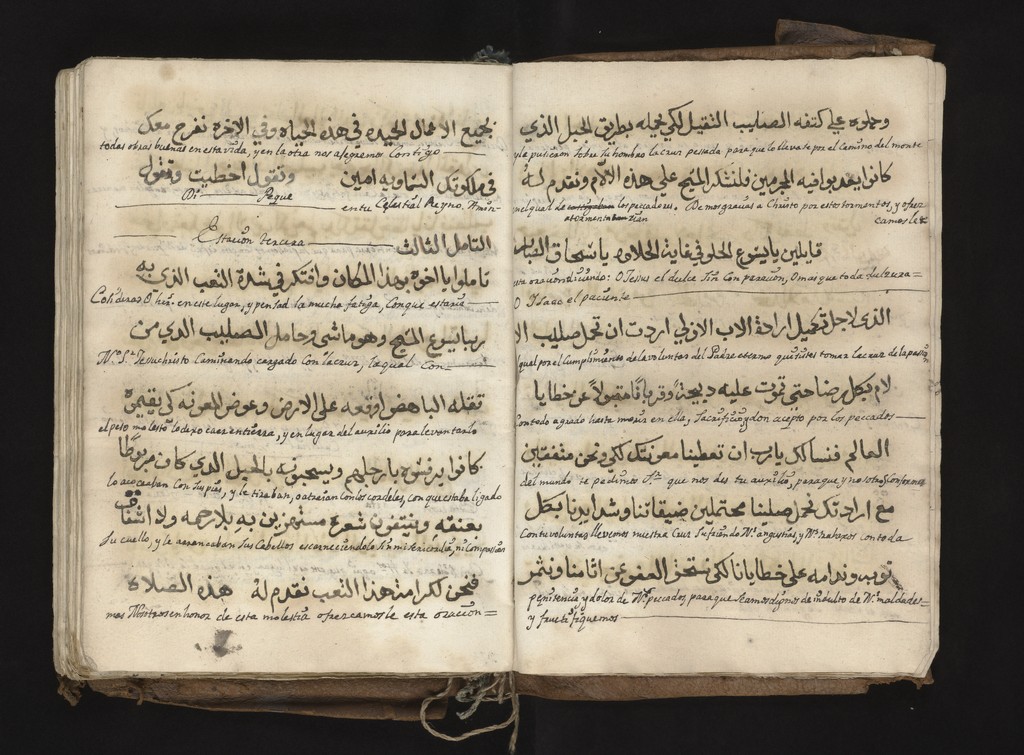 وحملوه على كتفه الصليب الثقيل لكي يحمله بطريق الجبل الذي
y la pusieron sobre su hombro la cruz pessada para que lo llevate por el camino del monte
كانوا يعدبوا فيه المجرمين فلنشكر المسيح علي هذه الالام ونقدم له
nelqual de los pecadores. Demos gracias a Christo por estos tormentos, y ofrez
atormentaban camosle
قايلين يايسوع الحلو في غاية الحلاوه يا اسحاق
esta oracion diciendo: O Jesus el dulce sin comparacion, O mas que toda dulzura
O Isaac el paciente
الذي لاجل تكميل ارادة الاب الازلي اردت ان تحمل صليب الا
qual por el cumplimiento de la voluntad del Padre eterno quisistes tomar la cruz de la passion
لام بكل رضا حتي تموت عليه دبيحة وقربانا مقبولا عن خطايا
con todo agrado hasta morir en ella, Sacrificio, y don acepto por los pecados
العالم فنسالك يارب ان تعطينا معونتك لكي ونحن متفقين
del mundo te pedimos Sr. que nos des tu auxilio, para que, y nosotros conformes
مع ارادتك نحمل صليبنا محتملين ضيقاتنا وشدايدنا بكل
Con tu voluntad llevemos nuestra Cruz sufriendo Ns. angustias, y Ns. trabaxos con toda
توبه وندامه على خطايانا لكي نستحق العفو عن اثامنا ونثمر
penitencia y dolor de Ns. pecados, para que seamos dignos de indulto de Ns. maldades
y fructifiquemos
بجميع الاعمال الجيده في هذه الحياه وفي الاخره نفرح معك
todas obras buenas en esta vida, y en la otra nos alegremos contigo
في ملكوتك السماويه امين وتقول اخطيت وتقوله
en tu Celestial Reyno. Amen Peque
Estacion tercera
التامل الثالث
تاملوا يا اخوه بهذا المكان وافتكر في شدة التعب الذي به
Considerad O hir. en este lugar, y pensad la mucha fatiga, con que estava
ربنا يسوع المسيح وهو ماشي وحامل الصليب الدي من
N. S. Jesuchristo caminando cargado con la cruz, la qual con
ثقله الباهض اوقعه على الارض وعوض المعونه كي يقيموه
el peso molesto lo dexo caer en tierra, y en lugar del auxilio para levantarlo
كانوا يرفسوه بارجلهم ويسحبونه بالحبل الذي كان مربوطا
lo acoceaban con sus pies, y le tiraban, o atraian con los cordeles, con que estaba ligado
بعنقه وينتفون شعره مستهزين به بلا رحمه ولا اشفاق
Su cuello, y le arrancaban sus cabellos escarneciendolo sin misericordia, ni compassion
فنحن لكرامت هذا التعب نقدم له هذه الصلاة
mas Nosotros en honor de esta molestia ofrezcamosle esta oracion